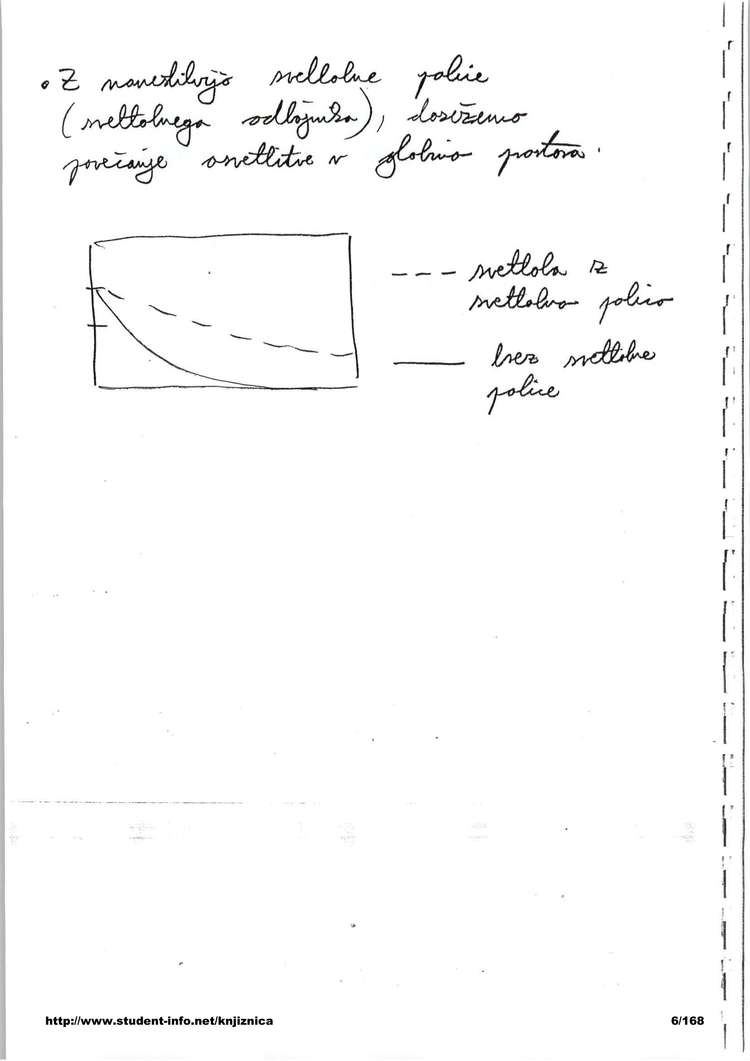 • Z namestitvijo svetlobne police
(svetlobnega odbojnika), dosežemo
povečanje osvetlitve v globino prostora.
--- svetloba s
svetlobno polico
—— brez svetlobne
police
http://www.student-info.net/knjiznica
6/168